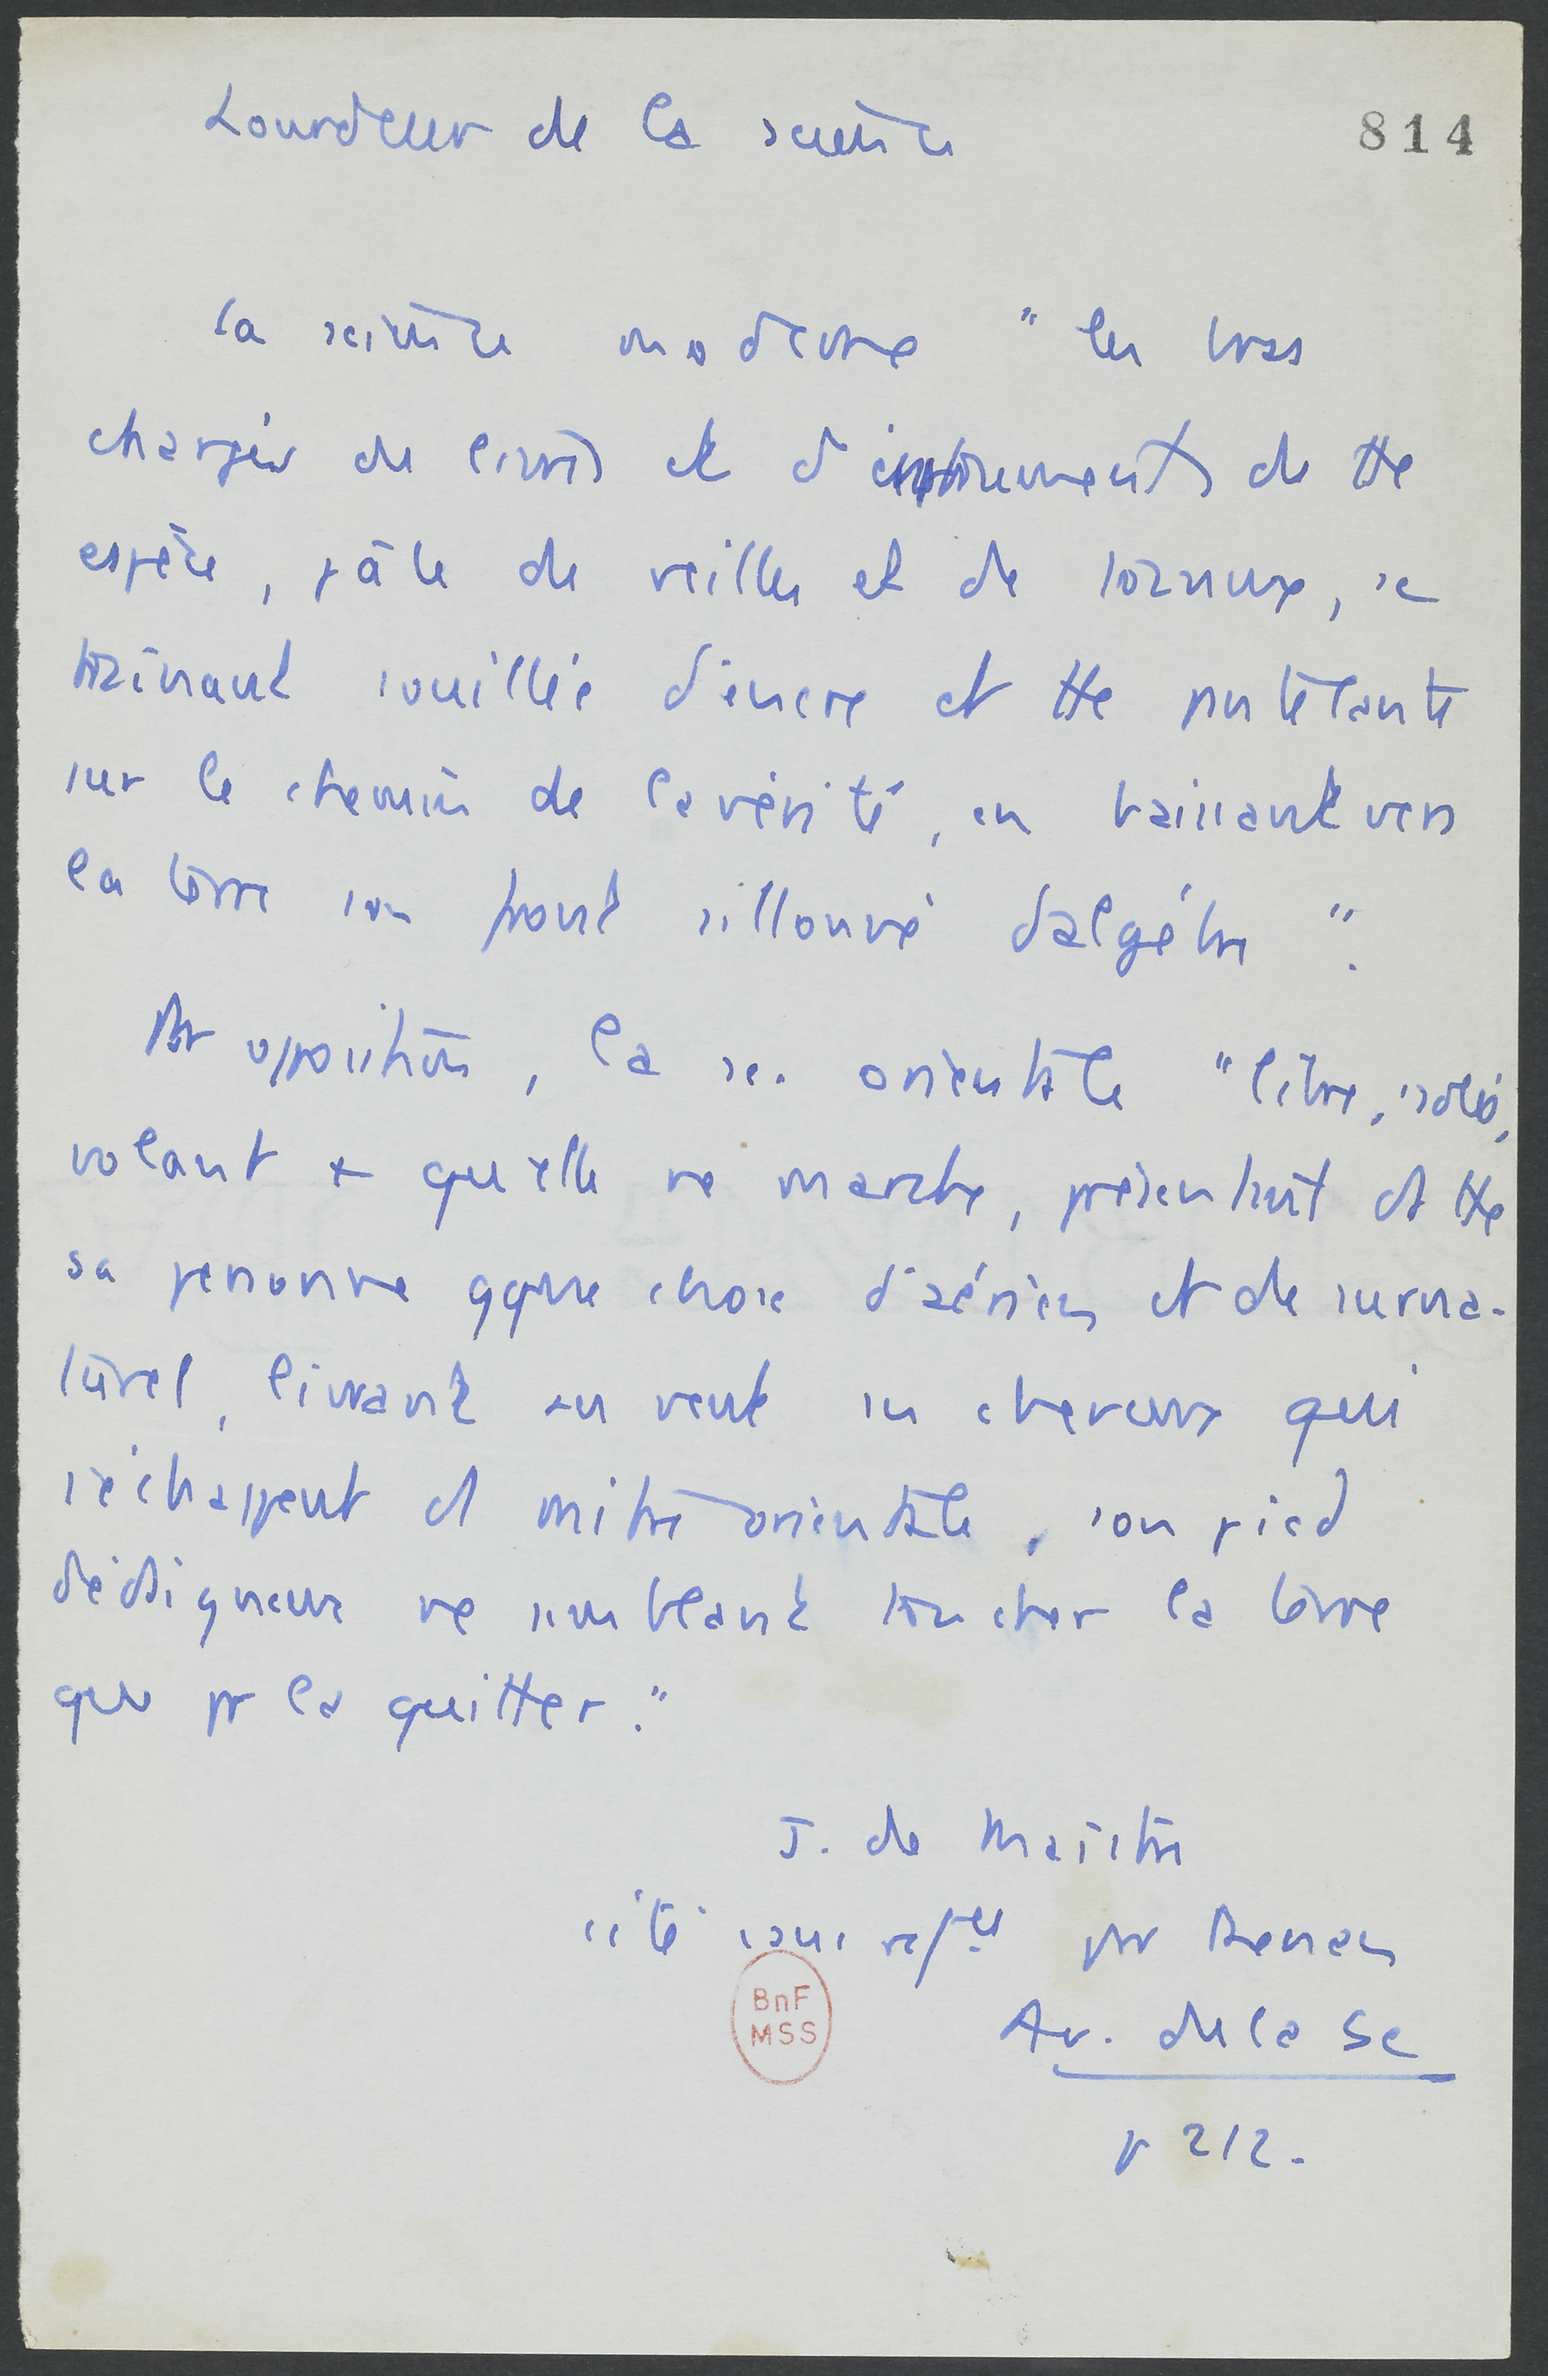 Lourdeur de la science
814
la science moderne "les bras
chargés de livres et d'instruments de tte
espèce, pâle de veilles et de travaux, se
traînant souillée d'encre et tte pantelante
sur le chemin de la vérité, en baissant vers
la terre son front sillonné d'algèbre".
Par opposition, la sc. orientale "libre, isolée,
volant + qu'elle ne marche, présentant ds tte
sa personne qque chose d'aérien et de surna-
turel, livrant au vent ses cheveux qui
s'échappent ds mitre orientale, son pied
dédaigneux ne semblant toucher la terre
que pr la quitter."
J. de Maistre
cité sans refces par Renan
Av. de la Sc
p 212.
BnF
MSS